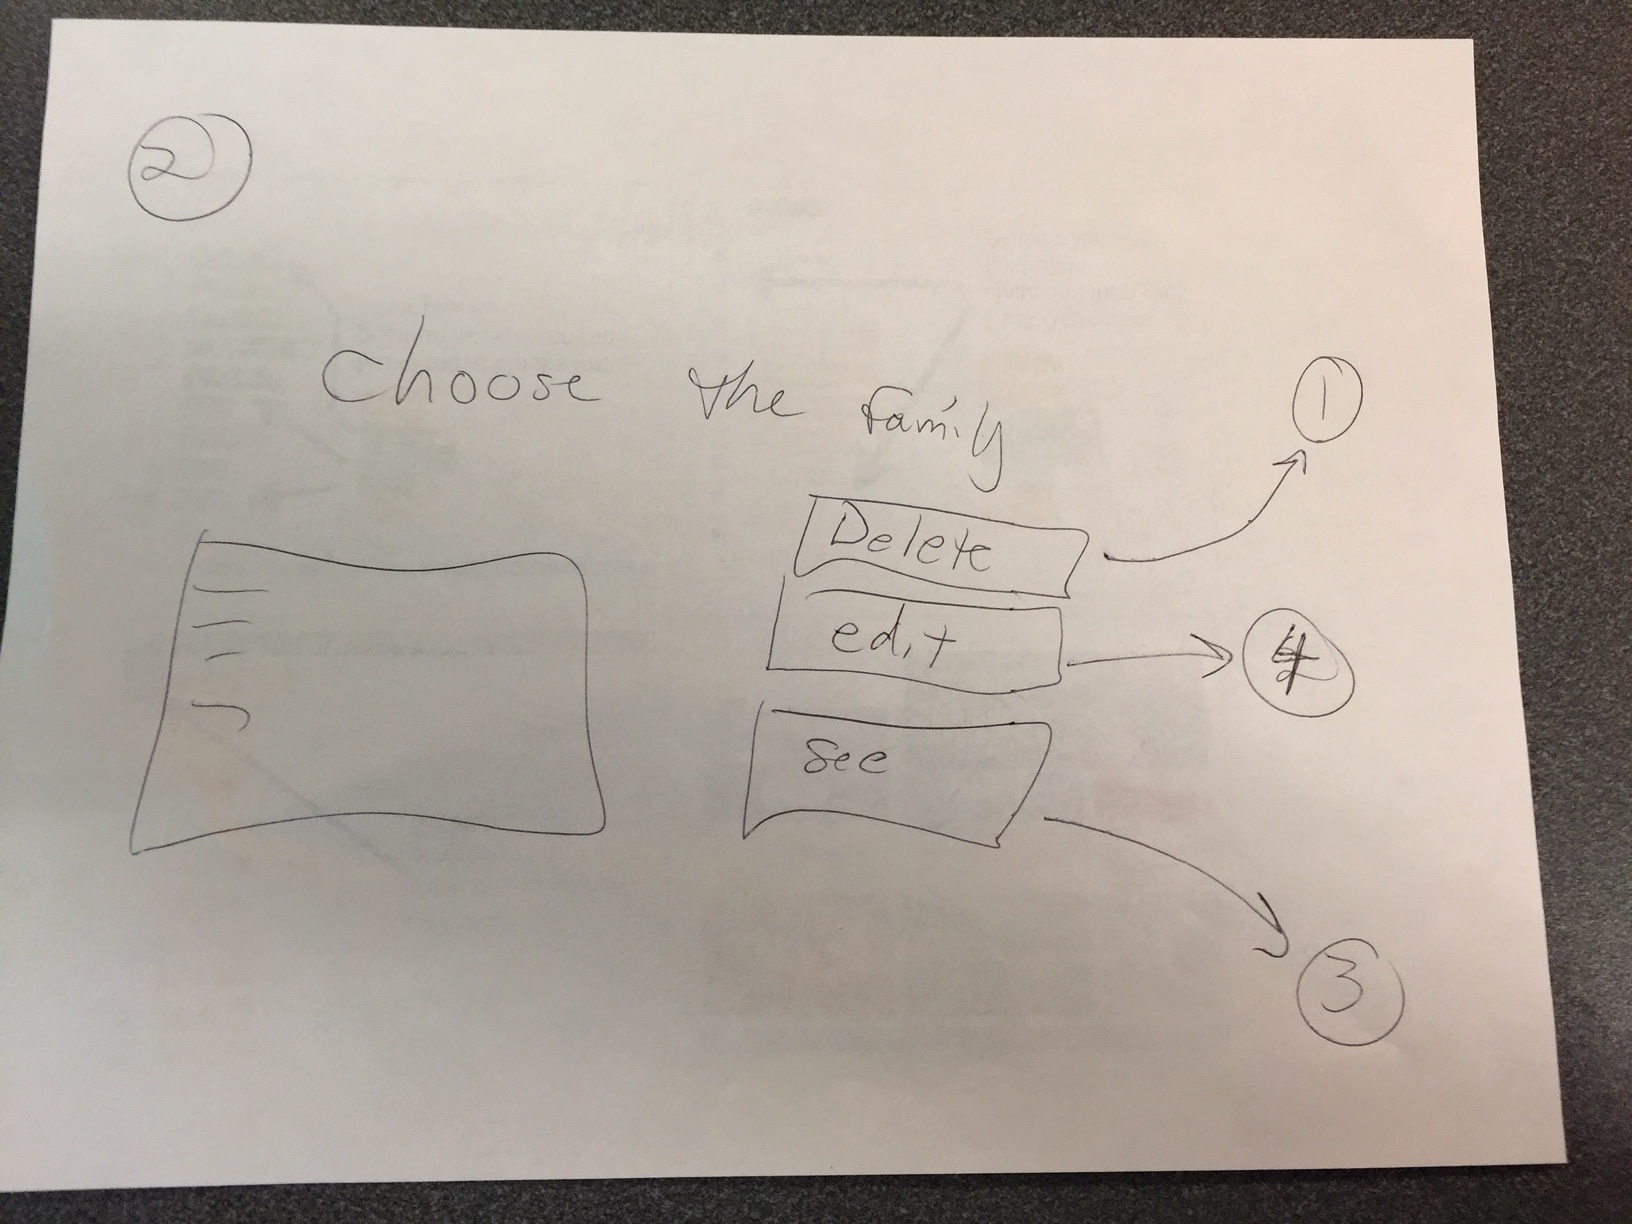 2
Choose the family
1
Delete
edit
4
see
3